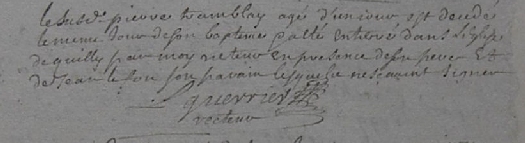 le susd. pierre tremblay agé d'un jour est decedé
le meme jour de son baptême et a eté enterré dans l'eglise
de quilly par moy recteur en presence de son pere et
de jean le sou son parain lesquels ne scavent signer
Guerrier
recteur